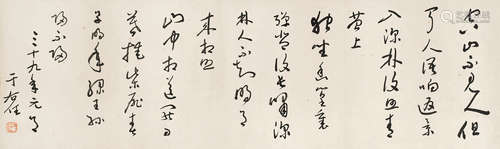 空山不見人但
聞人語響返景
入深林復照青
苔上
獨坐幽篁裏
彈琴復長嘯深
林人不知明月
來相照
山中相送罷日
暮掩柴扉春
草明年綠王孫
歸不歸
三十九年元月
于右任